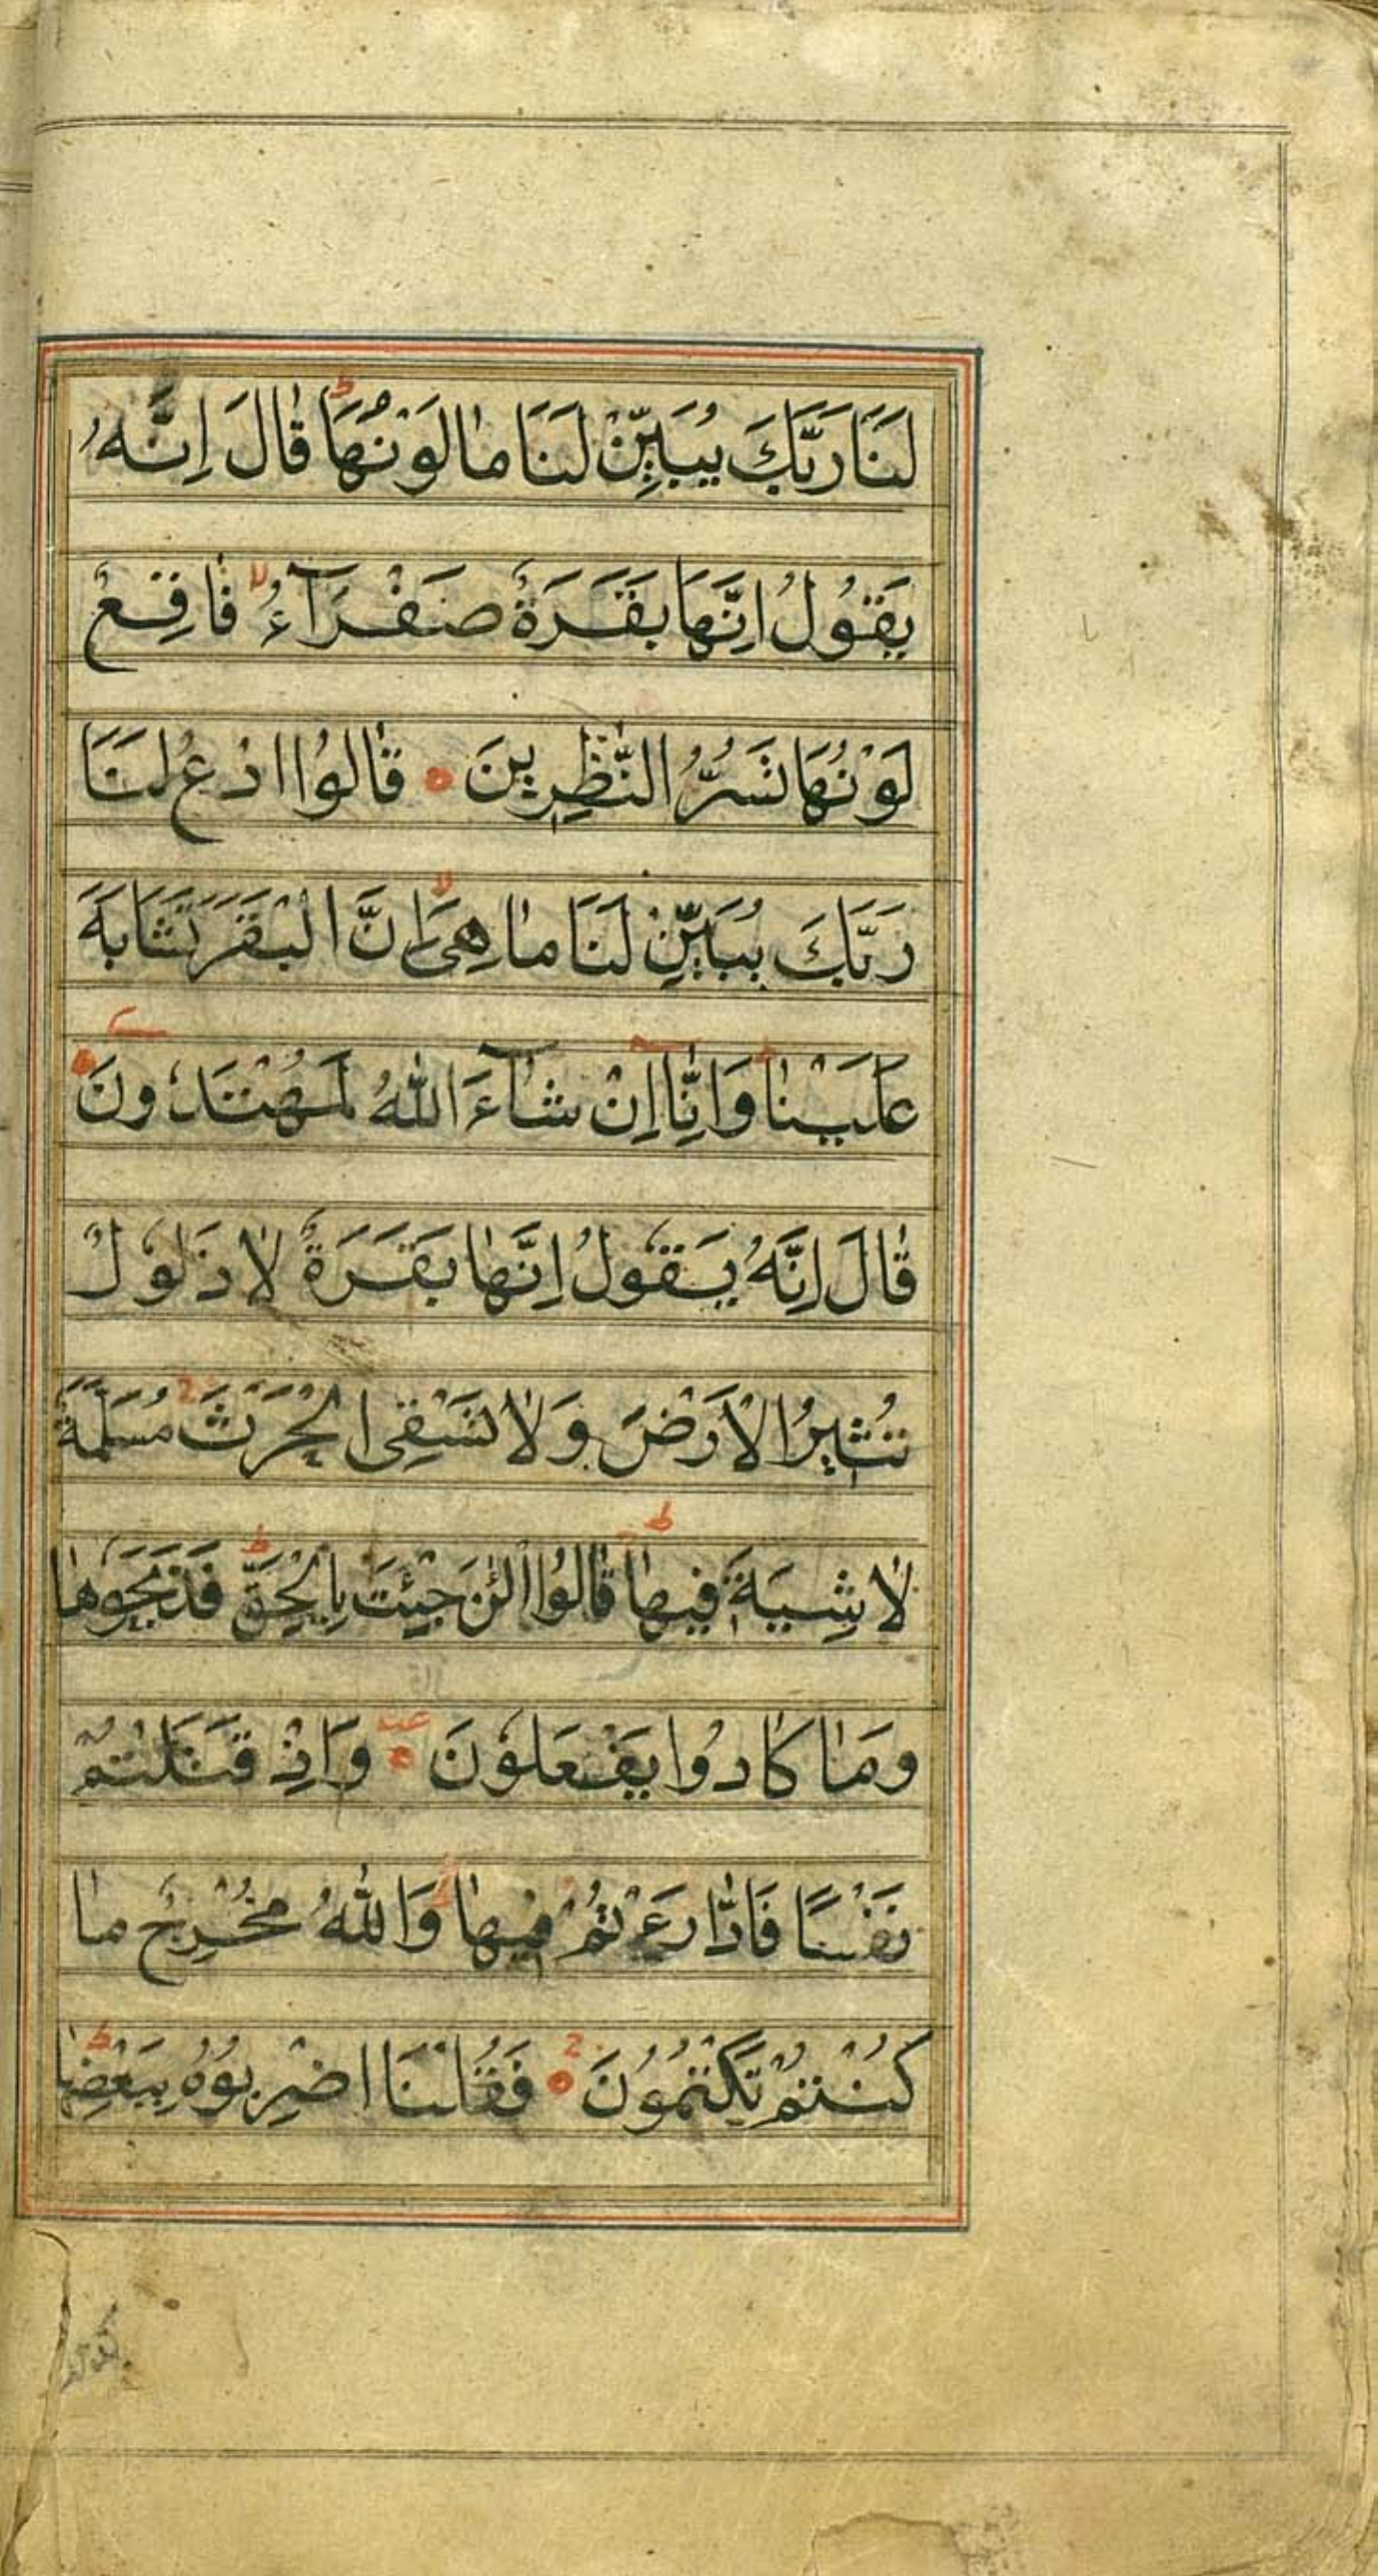 لَنَا رَبَّكَ يُبَيِّنْ لَنَا مَا لَوْنُهَا ط قَالَ اِنَّهُ
يَقُوْلُ اِنَّهَا بَقَرَةٌ صَفْرَآءُ لا فَاقِعٌ
لَوْنُهَا تَسُرُّ النّٰظِرِيْنَ ه قَالُوْا ادْعُ لَنَا
رَبَّكَ يُبَيِّنْ لَنَا مَا هِىَ لا اِنَّ الْبَقَرَ تَشَابَهَ
عَلَيْنَا وَاِنَّا اِنْ شَآءَ اللّٰهُ لَمُهْتَدُوْنَ ه
قَالَ اِنَّهُ يَقُوْلُ اِنَّهَا بَقَرَةٌ لَا ذَلُوْلٌ
تُثِيْرُ الْاَرْضَ وَلَا تَسْقِى الْحَرْثَ ج مُسَلَّمَةٌ
لَا شِيَةَ فِيْهَا ط قَالُوا الْئٰنَ جِئْتَ بِالْحَقِّ ط فَذَبَحُوْهَا
وَمَا كَادُوْا يَفْعَلُوْنَ ه وَاِذْ قَتَلْتُمْ
نَفْسًا فَادّٰرَءْتُمْ فِيْهَا ط وَاللّٰهُ مُخْرِجٌ مَا
كُنْتُمْ تَكْتُمُوْنَ ه ج فَقُلْنَا اضْرِبُوْهُ بِبَعْضِهَا ط